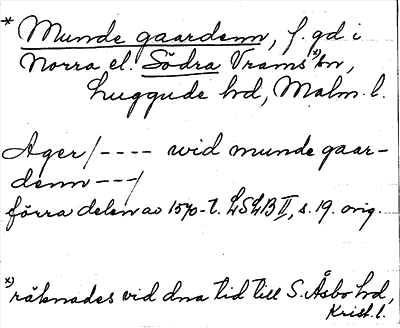 * Munde gaardenn, f. gd i
Norra el. Södra Vrams x) sn,
Luggude hd, Malm. l.
Ager /---- wid munde gaar-
denn ---/
förra delen av 1570-t. LSLB II, s. 19. orig.
x) räknades vid dna tid till S. Åsbo hd,
Krist. l.